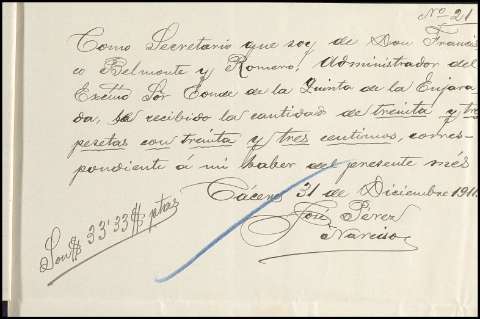 Nº 21
Como Secretario que soy de Don Francis
co Belmonte y Romero, Administrador del
Excmo Sôr Conde de la Quinta de la Enjara-
da, he recibido la cantidad de treinta y tres
pesetas con treinta y tres centimos, corres-
pondiente á mi haber del presente més
Cáceres 31 de Diciembre 1911.
José Pérez
Narciso
Son $ 33'33 $ ptas